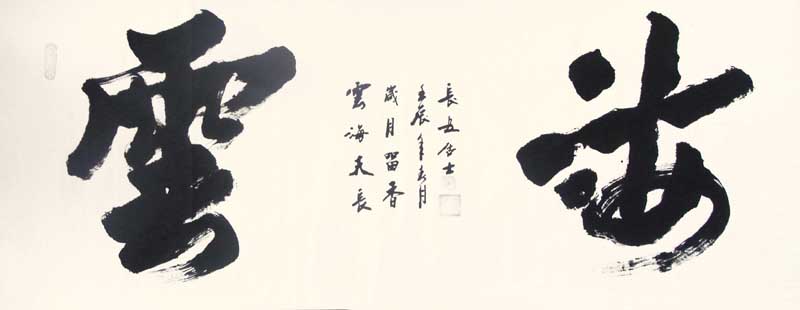 雲海
雲海天長
歲月留香
壬辰年春月
長居士